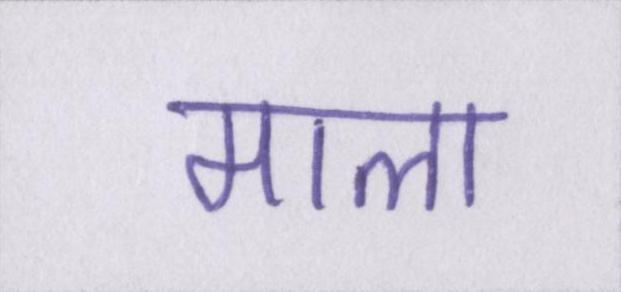 माला